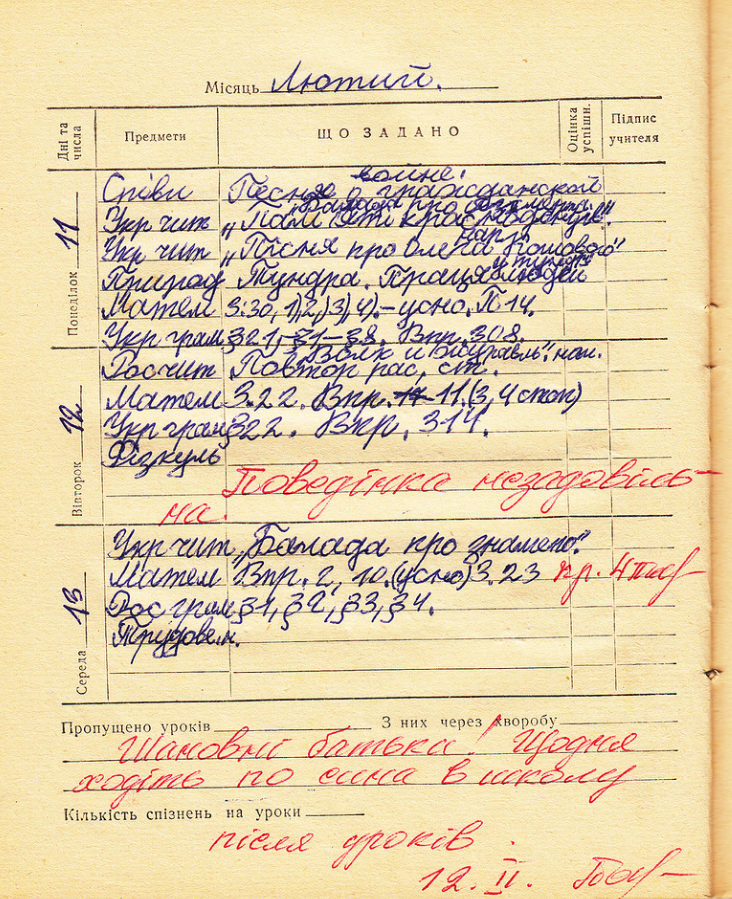 Місяць Лютий.
Дні та числа Предмети ЩО ЗАДАНО Оцінка успішн. Підпис учителя
войне!
Понеділок 11 Співи Песня о гражданской
"Балада про
Укр чит „Пам'яті краснодонців"
Укр чит „Пісня про
Природ Тундра. Праця людей
в тундрі
Матем З.30, 1), 2), 3), 4).–усно. П 14.
Укр грам §21, §1–38. Впр. 308.
„Волк и журавль". нам.
Вівторок 12 Рос чит Повтор рас, ст.
Матем З.22. Впр. 11.(3, 4 стоп)
Укр грам §22. Впр. 314.
Фізкуль
Поведінка незадовіль-
на.
Середа 13 Укр чит „Балада про знамено".
Матем Впр. 2, 10.(усно) З.23 пр. 4
Рос грам §1, §2, §3, §4.
Трудове н.
Пропущено уроків З них через хворобу
Шановні батьки! Щодня
ходіть по сина в школу
Кількість спізнень на уроки
після уроків.
12. II.